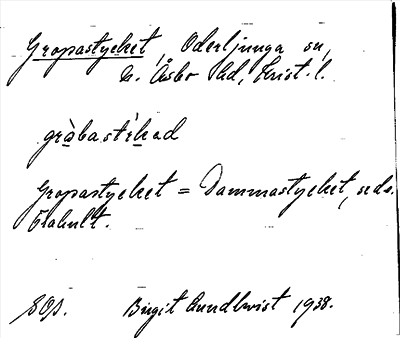 Gropastycket, Oderljunga sn,
N. Åsbo hd, Krist. l.
gròbastẏk̲ad
Gropastycket = Dammastycket, se ds.
Ekahult.
SOS. Birgit Lundkvist 1938.